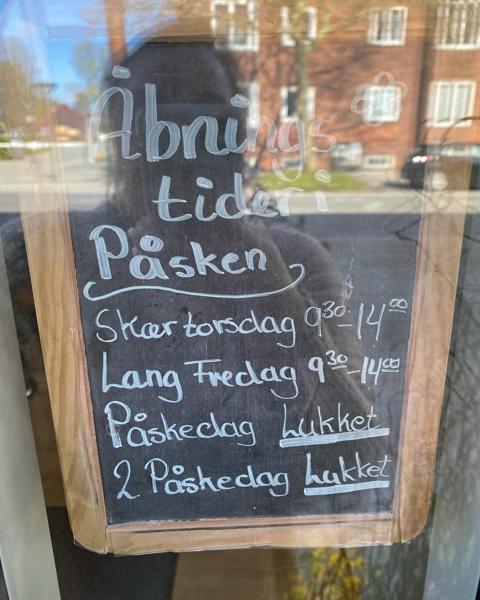 Åbnings
tider i
Påsken
Skærtorsdag 9³⁰-14⁰⁰
Lang Fredag 9³⁰-14⁰⁰
Påskedag Lukket
2 Påskedag Lukket